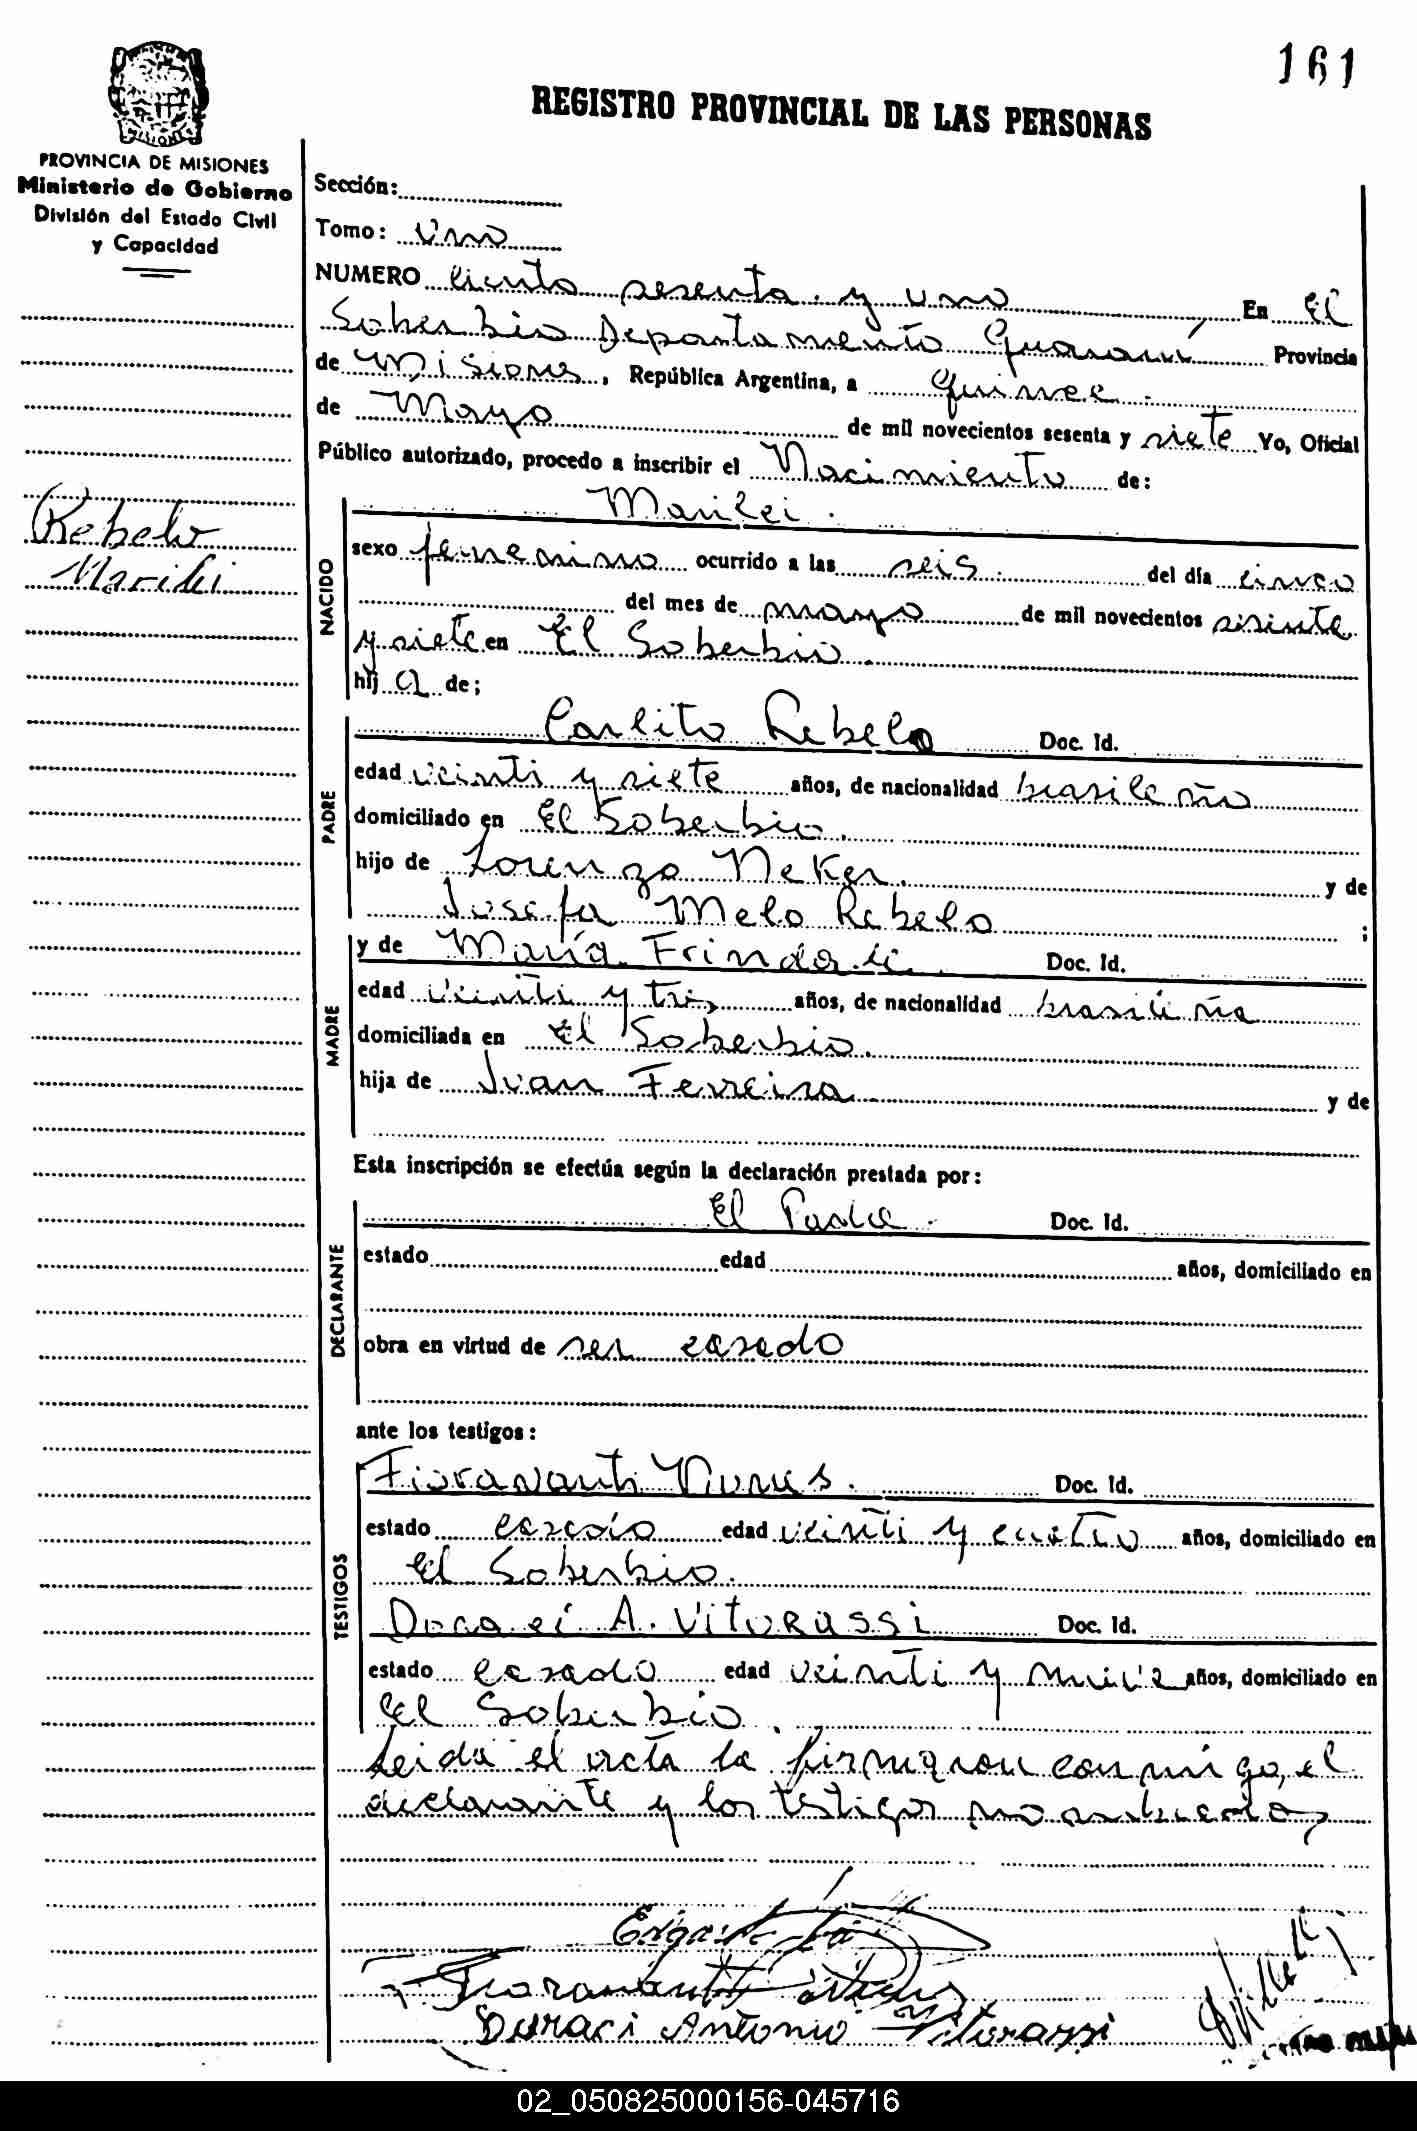 161
REGISTRO PROVINCIAL DE LAS PERSONAS
MISIONES
PROVINCIA DE MISIONES
Ministerio de Gobierno
División del Estado Civil
y Capacidad
Sección:
Tomo: Uno
NUMERO ciento sesenta y uno En El
Soberbio Departamento Guaraní Provincia
de Misiones, República Argentina, a quince
de Mayo de mil novecientos sesenta y siete Yo, Oficial
Público autorizado, procedo a inscribir el Nacimiento de:
Marilei.
Rebelo
Marilei
NACIDO
sexo femenino ocurrido a las seis del día cinco
del mes de mayo de mil novecientos sesenta
y siete en El Soberbio.
hij a de;
PADRE
Carlito Rebelo Doc. Id.
edad veinti y siete años, de nacionalidad brasileño
domiciliado en El Soberbio.
hijo de Lorenzo Neker y de
Josefa Melo Rebelo ;
MADRE
y de María Doc. Id.
edad veinti y tres años, de nacionalidad brasileña
domiciliada en El Soberbio.
hija de Juan Ferreira y de
Esta inscripción se efectúa según la declaración prestada por:
DECLARANTE
El Padre. Doc. Id.
estado edad años, domiciliado en
obra en virtud de ser casado
ante los testigos:
TESTIGOS
Fioravanti Nunes. Doc. Id.
estado casado edad veinti y cuatro años, domiciliado en
El Soberbio.
A. Vitorassi Doc. Id.
estado casado edad veinti y nueve años, domiciliado en
El Soberbio.
Leida el acta la firmaron conmigo, el
declarante y los testigos
Fioravanti
Duraci Antonio Vitorassi
02_050825000156-045716